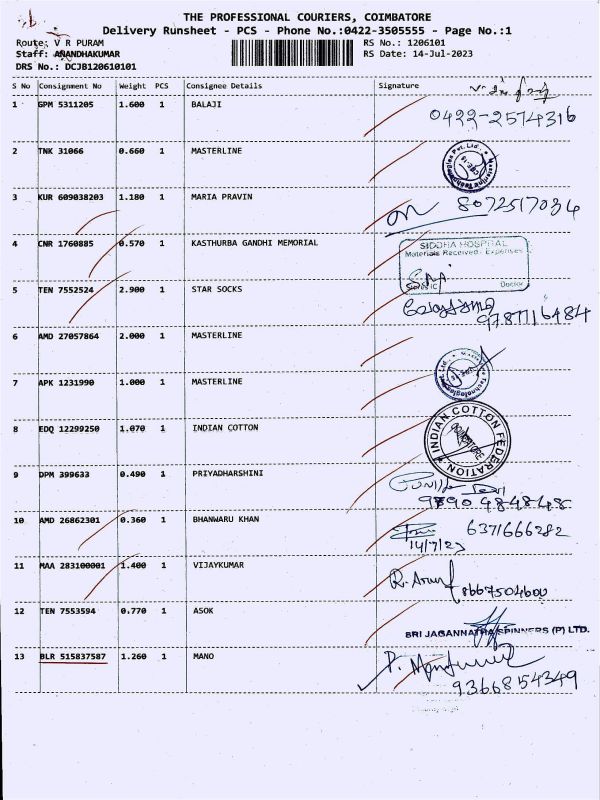 THE PROFESSIONAL COURIERS, COIMBATORE
Delivery Runsheet - PCS - Phone No.:0422-3505555 - Page No.:1
Route: V R PURAM RS No.: 1206101
Staff: ANANDHAKUMAR RS Date: 14-Jul-2023
DRS No.: DCJB120610101
S No Consignment No Weight PCS Consignee Details Signature
1 GPM 5311205 1.600 1 BALAJI
0422-2574316
2 TNK 31066 0.660 1 MASTERLINE
3 KUR 609038203 1.180 1 MARIA PRAVIN 8072517034
4 CNR 1760885 0.570 1 KASTHURBA GANDHI MEMORIAL
SIDDHA HOSPITAL
Materials Received - Expenses
Doctor
5 TEN 7552524 2.900 1 STAR SOCKS
9787116484
6 AMD 27057864 2.000 1 MASTERLINE
7 APK 1231990 1.000 1 MASTERLINE
8 EDQ 12299250 1.070 1 INDIAN COTTON
INDIAN COTTON FEDERATION
COIMBATORE
9 DPM 399633 0.490 1 PRIYADHARSHINI
10 AMD 26862301 0.360 1 BHANWARU KHAN 6371666282
14/7/23
11 MAA 283100001 1.400 1 VIJAYKUMAR
8667504600
12 TEN 7553594 0.770 1 ASOK
SRI JAGANNATHA SPINNERS (P) LTD.
13 BLR 515837587 1.260 1 MANO
9366854349